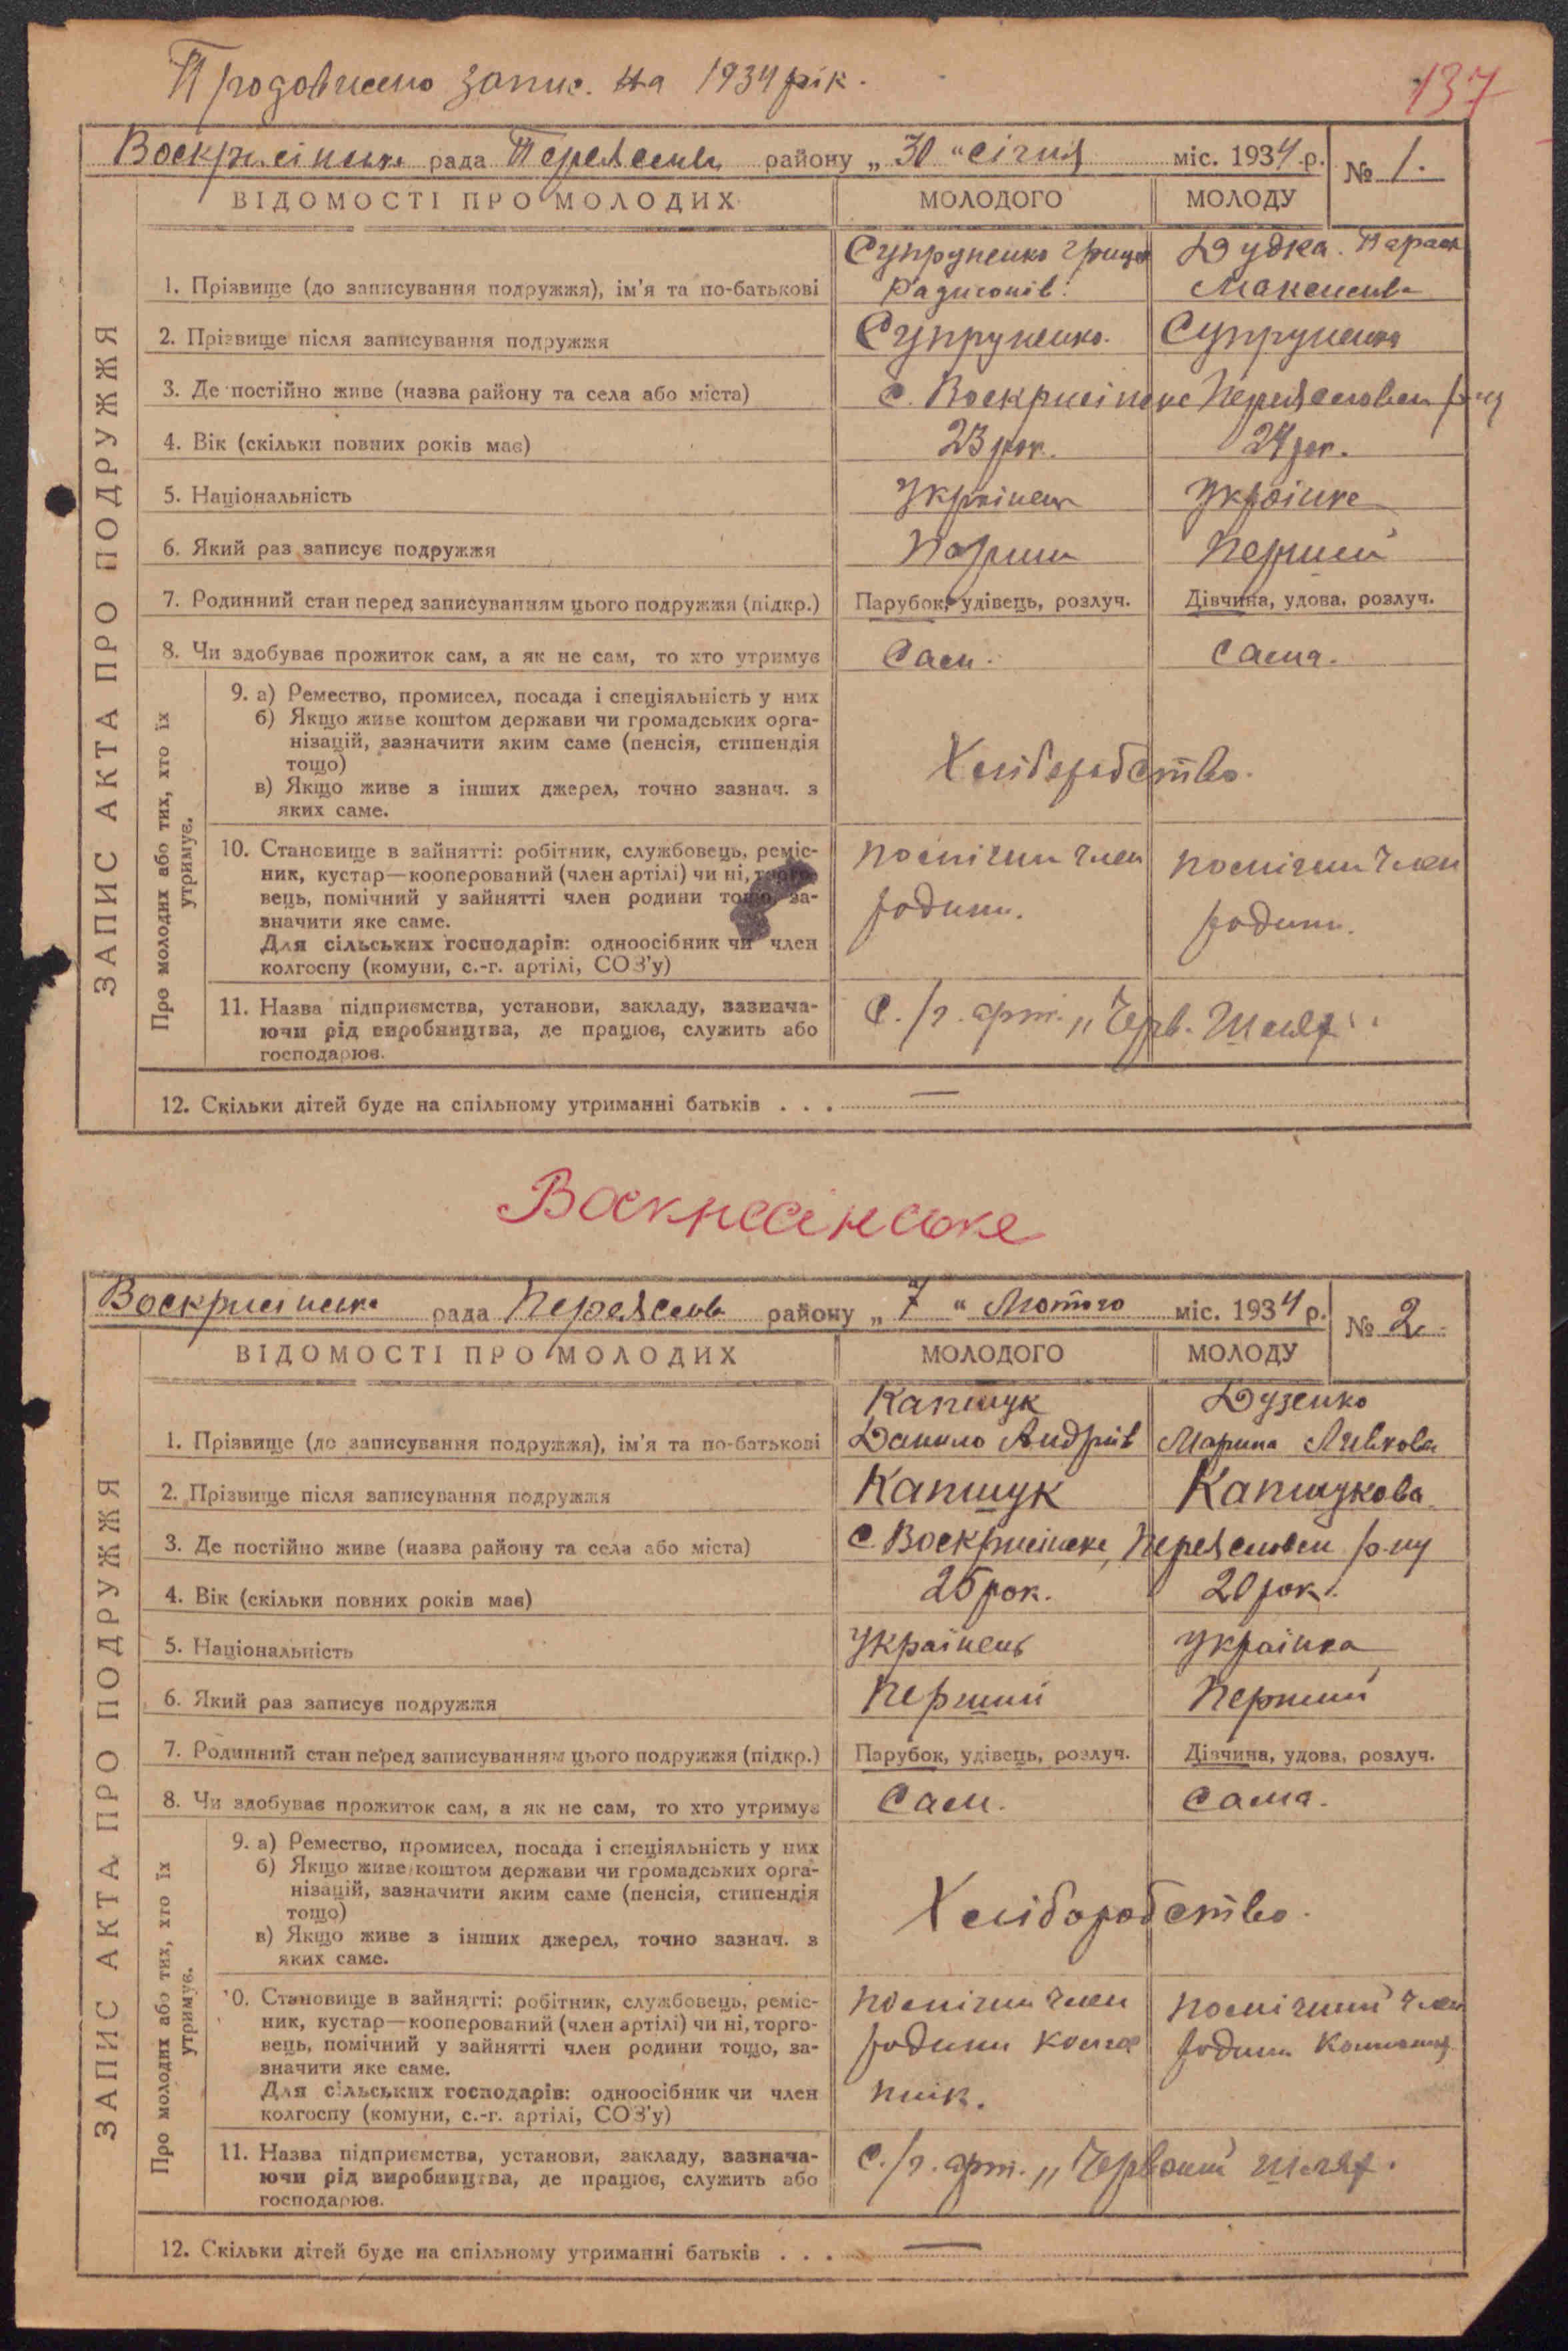 Продовжено запис. на 1934 рік.
137
Воскрисінська рада Переясяслів району „ 30 “ січня міс. 1934 р. № 1.
ВІДОМОСТІ ПРО МОЛОДИХ МОЛОДОГО МОЛОДУ
ЗАПИС АКТА ПРО ПОДРУЖЖЯ
Супруненко Гриць Дудка. Параск
1. Прізвище (до записування подружжя), ім'я та по-батькові Максимів
2. Прізвище після записування подружжя Супруненко. Супруненко
3. Де постійно живе (назва району та села або міста) с. Воскрисінське Переясловськ р-ну
4. Вік (скільки повних років має) 23 рок. 24 рок.
5. Національність Українець Українка
6. Який раз записує подружжя Перший
7. Родинний стан перед записуванням цього подружжя (підкр.) Парубок, удівець, розлуч. Дівчина, удова, розлуч.
8. Чи здобуває прожиток сам, а як не сам, то хто утримує Сам. Сама.
Про молодих або тих, хто їх
утримує.
9. а) Ремество, промисел, посада і спеціяльність у них
б) Якщо живе коштом держави чи громадських орга-
нізацій, зазначити яким саме (пенсія, стипендія
тощо) Хліборобство.
в) Якщо живе з інших джерел, точно зазнач. з
яких саме.
10. Становище в зайнятті: робітник, службовець, реміс- помічни член помічни член
ник, кустар—кооперований (член артілі) чи ні, торго-
вець, помічний у зайнятті член родини тощо, за- родини. родини.
значити яке саме.
Для сільських господарів: одноосібник чи член
колгоспу (комуни, с.-г. артілі, СОЗ'у)
11. Назва підприємства, установи, закладу, зазнача- С./г. арт. „Черв. Шлях“.
ючи рід виробництва, де працює, служить або
господарює.
12. Скільки дітей буде на спільному утриманні батьків . . . —
Воскресінське
Воскрисінська рада Переяслів району „ 7 “ Лютого міс. 1934 р. № 2.
ВІДОМОСТІ ПРО МОЛОДИХ МОЛОДОГО МОЛОДУ
ЗАПИС АКТА ПРО ПОДРУЖЖЯ
Капшук Дузенко
1. Прізвище (до записування подружжя), ім'я та по-батькові Данило Андріїв Марина
2. Прізвище після записування подружжя Капшук Капшукова
3. Де постійно живе (назва району та села або міста) с. Воскрисінське, Переясловськ р-ну
4. Вік (скільки повних років має) 25 рок. 20 рок.
5. Національність Українець Українка
6. Який раз записує подружжя Перший Перший
7. Родинний стан перед записуванням цього подружжя (підкр.) Парубок, удівець, розлуч. Дівчина, удова, розлуч.
8. Чи здобуває прожиток сам, а як не сам, то хто утримує Сам. Сама.
Про молодих або тих, хто їх
утримує.
9. а) Ремество, промисел, посада і спеціяльність у них
б) Якщо живе коштом держави чи громадських орга-
нізацій, зазначити яким саме (пенсія, стипендія
тощо) Хліборобство.
в) Якщо живе з інших джерел, точно зазнач. з
яких саме.
10. Становище в зайнятті: робітник, службовець, реміс- помічни член помічний член
ник, кустар—кооперований (член артілі) чи ні, торго-
вець, помічний у зайнятті член родини тощо, за- родини колгос родини
значити яке саме.
Для сільських господарів: одноосібник чи член пник.
колгоспу (комуни, с.-г. артілі, СОЗ'у)
11. Назва підприємства, установи, закладу, зазнача- С./г. арт. „Червоний шлях.
ючи рід виробництва, де працює, служить або
господарює.
12. Скільки дітей буде на спільному утриманні батьків . . . —